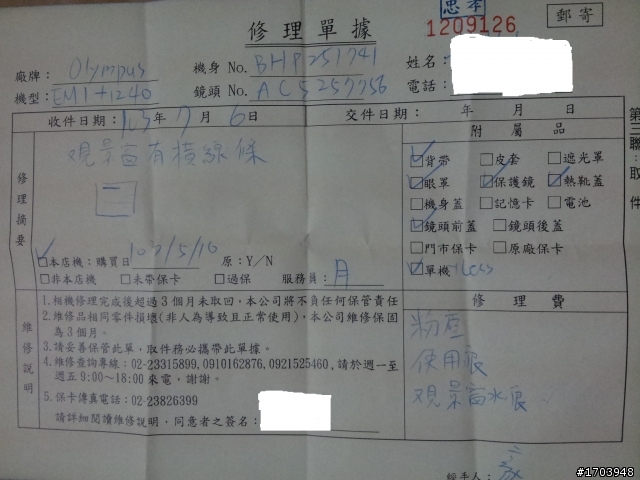 忠孝
修理單據
1209126
郵寄
廠牌：Olympus 機身 No. BHP251741 姓名：
機型：EM1+1240 鏡頭 No. AC5257756 電話：
收件日期：103年7月6日 交件日期： 年 月 日
第三聯：取件
修理摘要
观景窗有橫線條
附屬品
☑背帶 □皮套 □遮光罩
☑眼罩 ☑保護鏡 ☑熱靴蓋
□機身蓋 □記憶卡 □電池
☑鏡頭前蓋 □鏡頭後蓋
□門市保卡 □原廠保卡
☑單機
☑本店機：購買日 103/5/10 原：Y/N
□非本店機 □未帶保卡 □過保 服務員：月
維修說明
1.相機修理完成後超過3個月未取回，本公司將不負任何保管責任
2.維修品相同零件損壞(非人為導致且正常使用)，本公司維修保固
為3個月。
3.請妥善保管此單，取件務必攜帶此單據。
4.維修查詢專線：02-23315899, 0910162876, 0921525460, 請於週一至
週五9:00~18:00來電，謝謝。
5.保卡傳真電話：02-23826399
請詳細閱讀維修說明，同意者之簽名：
修理費
粉塵
使用痕
观景窗水痕
經手人：
#1703948